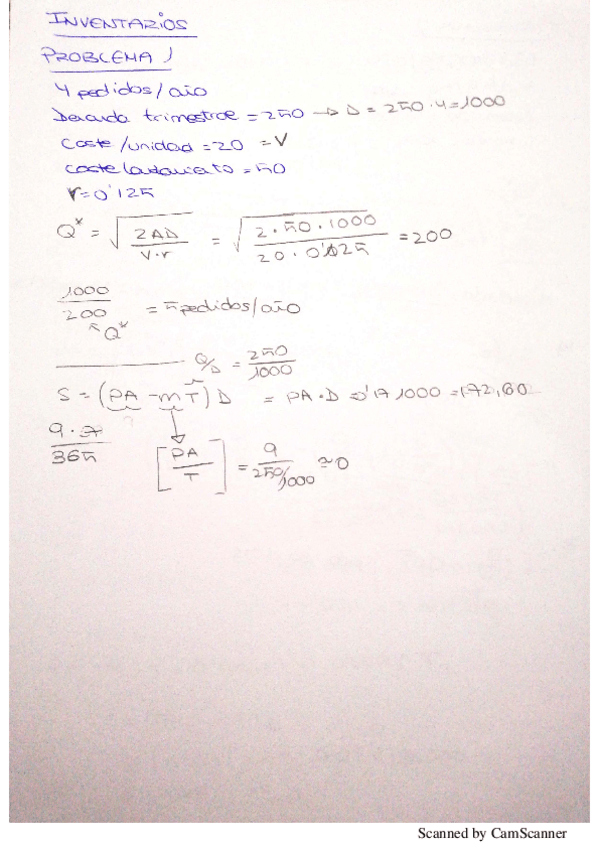 INVENTARIOS
PROBLEMA 1
4 pedidos/año
Demanda trimestral = 250 → D = 250·4 = 1000
Coste/unidad = 20 = V
Coste lanzamiento = 50
r = 0'125
Q* = √(2AD / V·r) = √(2·50·1000 / 20·0'125) = 200
1000 / 200 = 5 pedidos/año
Q*
Q/D = 250 / 1000
S = (PA - mT) D = PA·D = 0'17·1000 = 172,60
9·7 / 365
[PA / T] = 9 / 250/1000 ≈ 0
Scanned by CamScanner